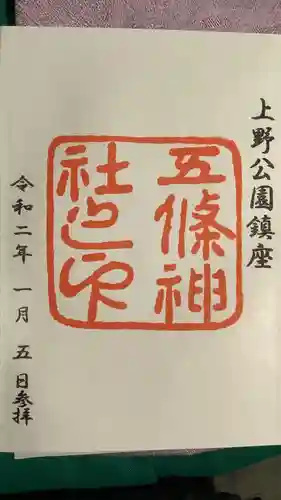 上野公園鎮座
五條神
社之印
令和二年一月五日参拝